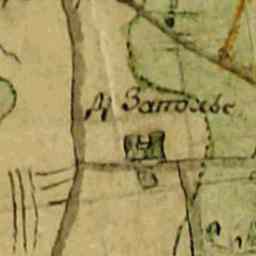 Д Заполье